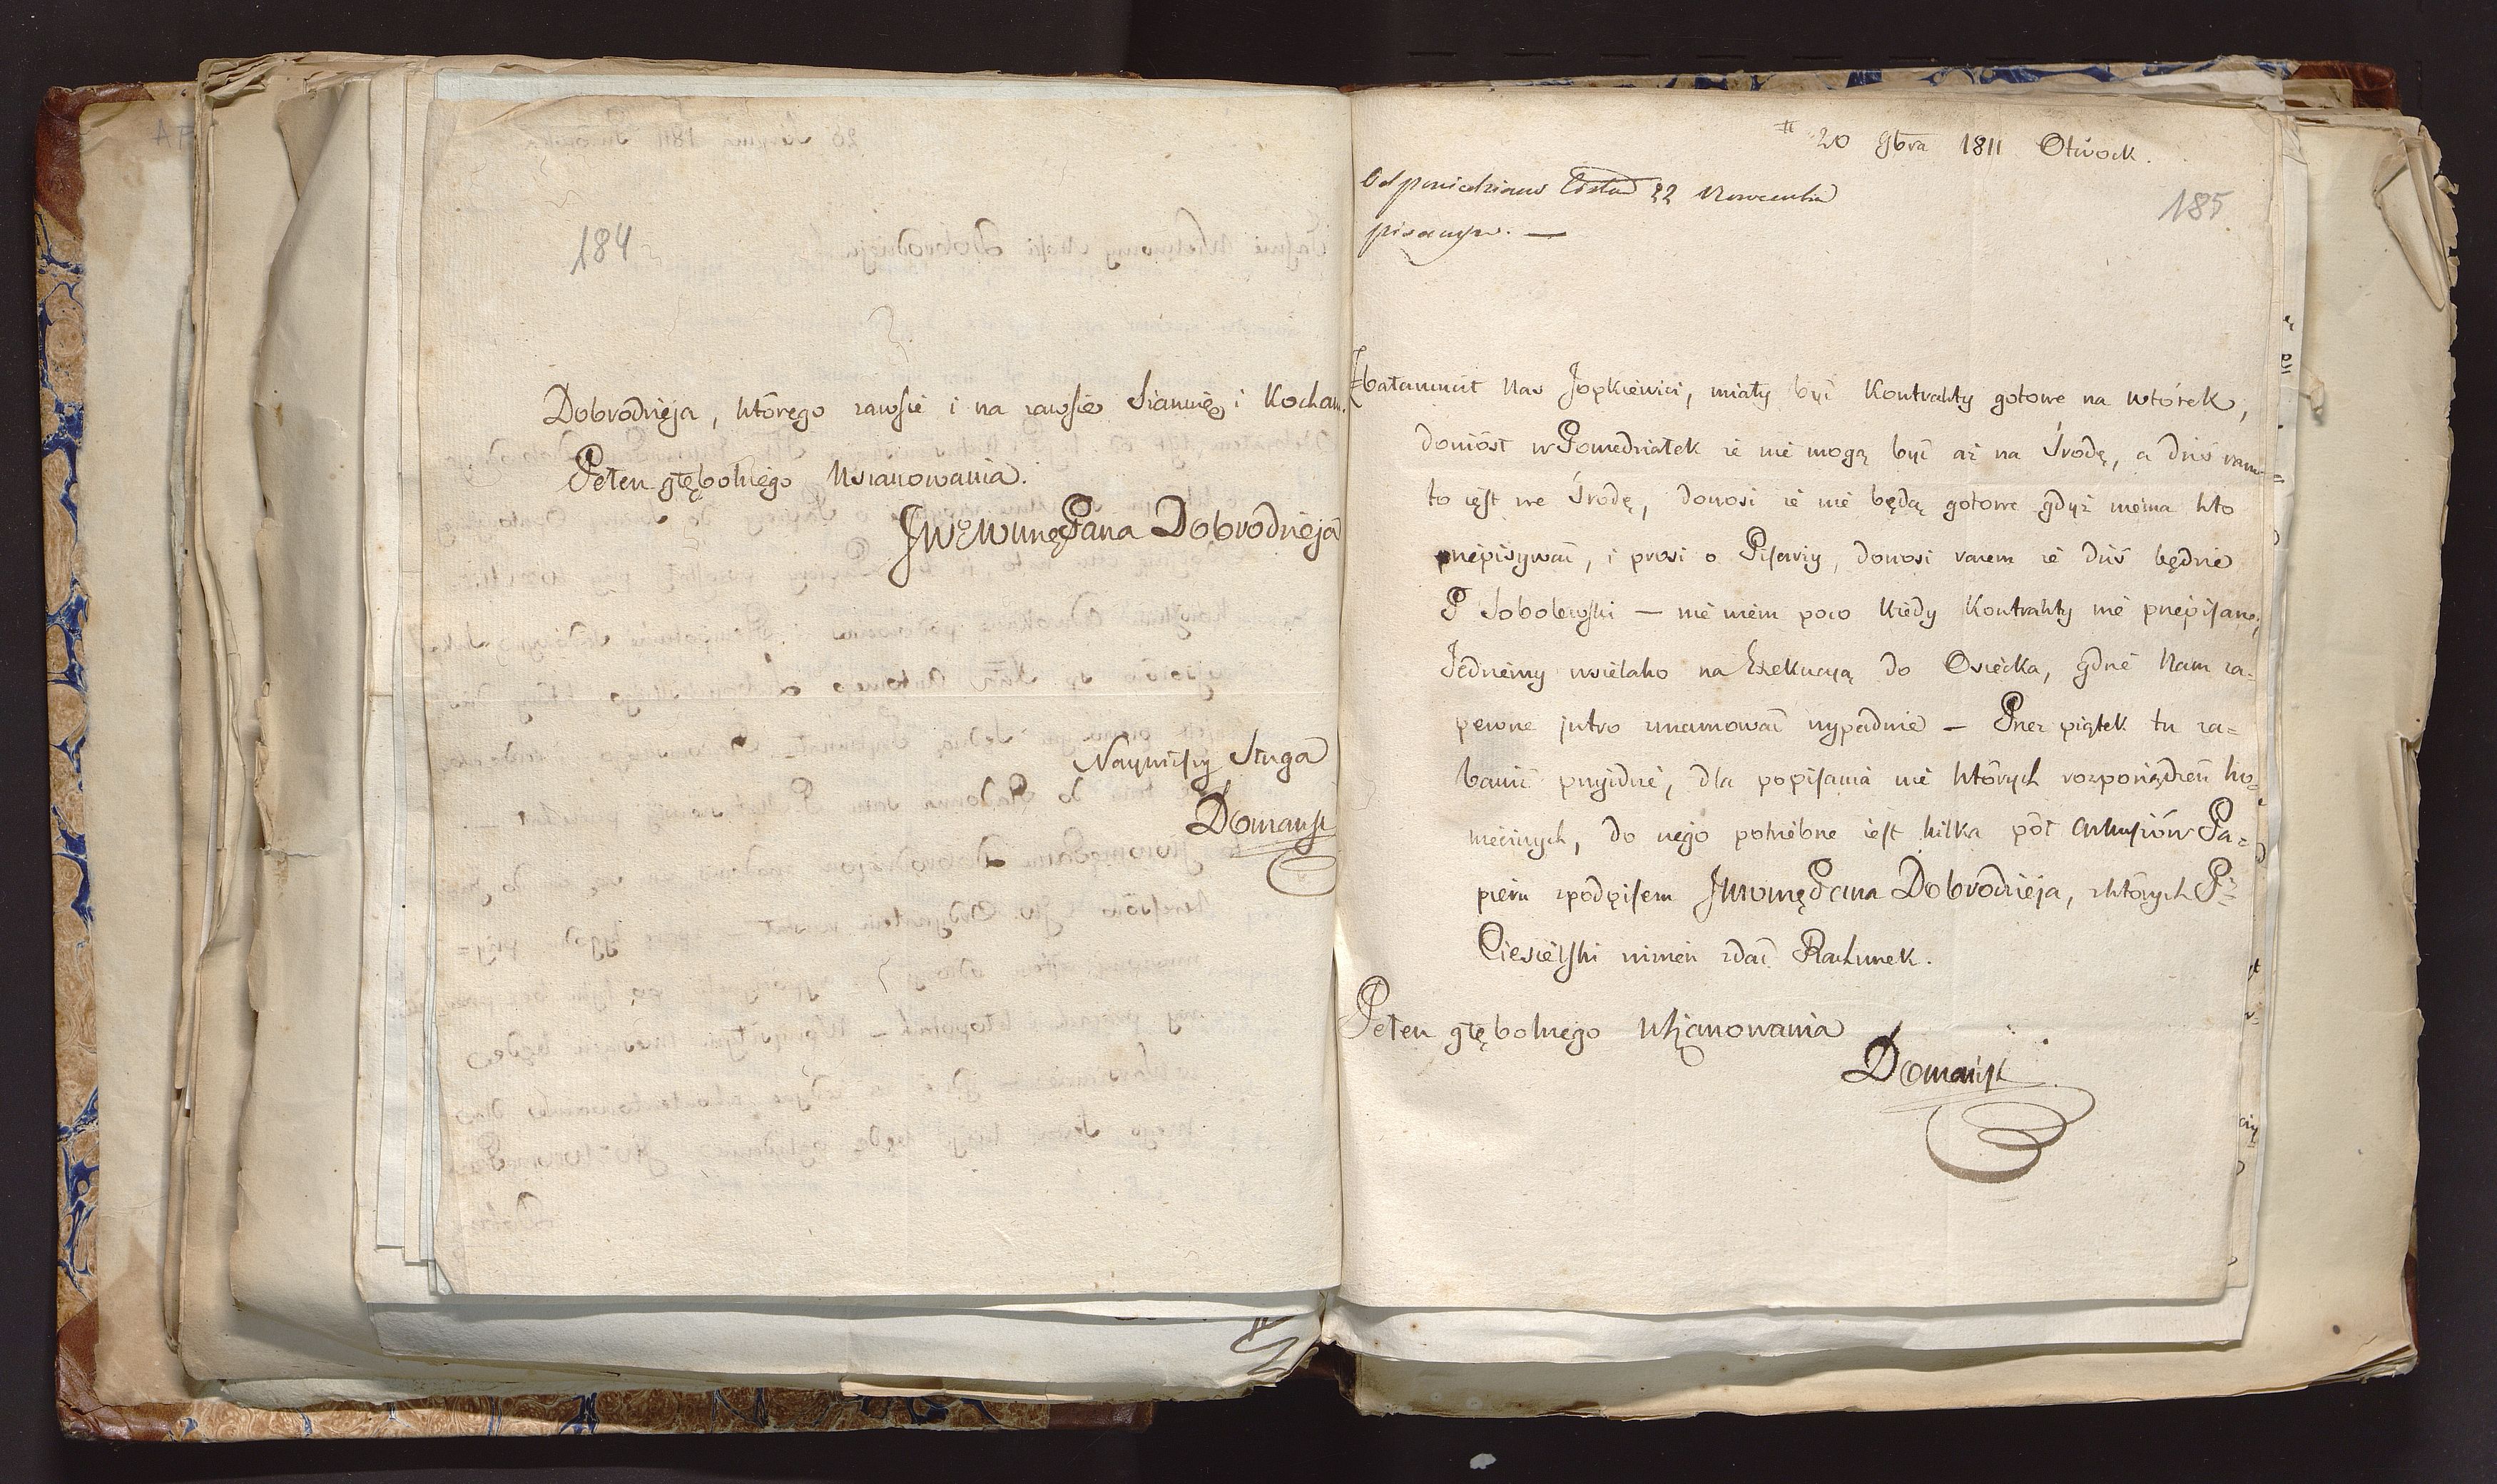 184
Dobrodzieja, którego zawsze i na zawsze Szanuię i Kocham.
Pełen głębokiego Uszanowania.
JWo WmgęPana Dobrodzieja
Nayniższy Sługa
Domańsk
20 9bra 1811 Otwock.
185
Odpowiedziano 22 Novembra
pisanym. —
Zbałamucił Nas Jopkiewicz, miały być Kontrakty gotowe na wtórek,
doniósł w Poniedziałek że nie mogą być aż na Środę, a dziś rano
to iest we Środę, donosi że nie będą gotowe gdyż niema kto
przepisywać, i prosi o Pisarzy, donosi razem że dziś będzie
P Sobolewski — nie wiem poco kiedy Kontrakty nie przepisane,
Jedziemy wszelako na Exekucyą do Osiecka, gdzie Nam za=
pewne jutro zanocować wypadnie — Przez piątek tu za=
bawić przyidzie, dla popisania nie których rozporządzeń ko=
niecznych, do czego potrzebne iest kilka pół Arkuszów Pa=
pieru z podpisem JWWmgęPana Dobrodzieja, z których P
Ciesielski winien zdać Rachunek.
Pełen głębokiego uszanowania
Domańsk